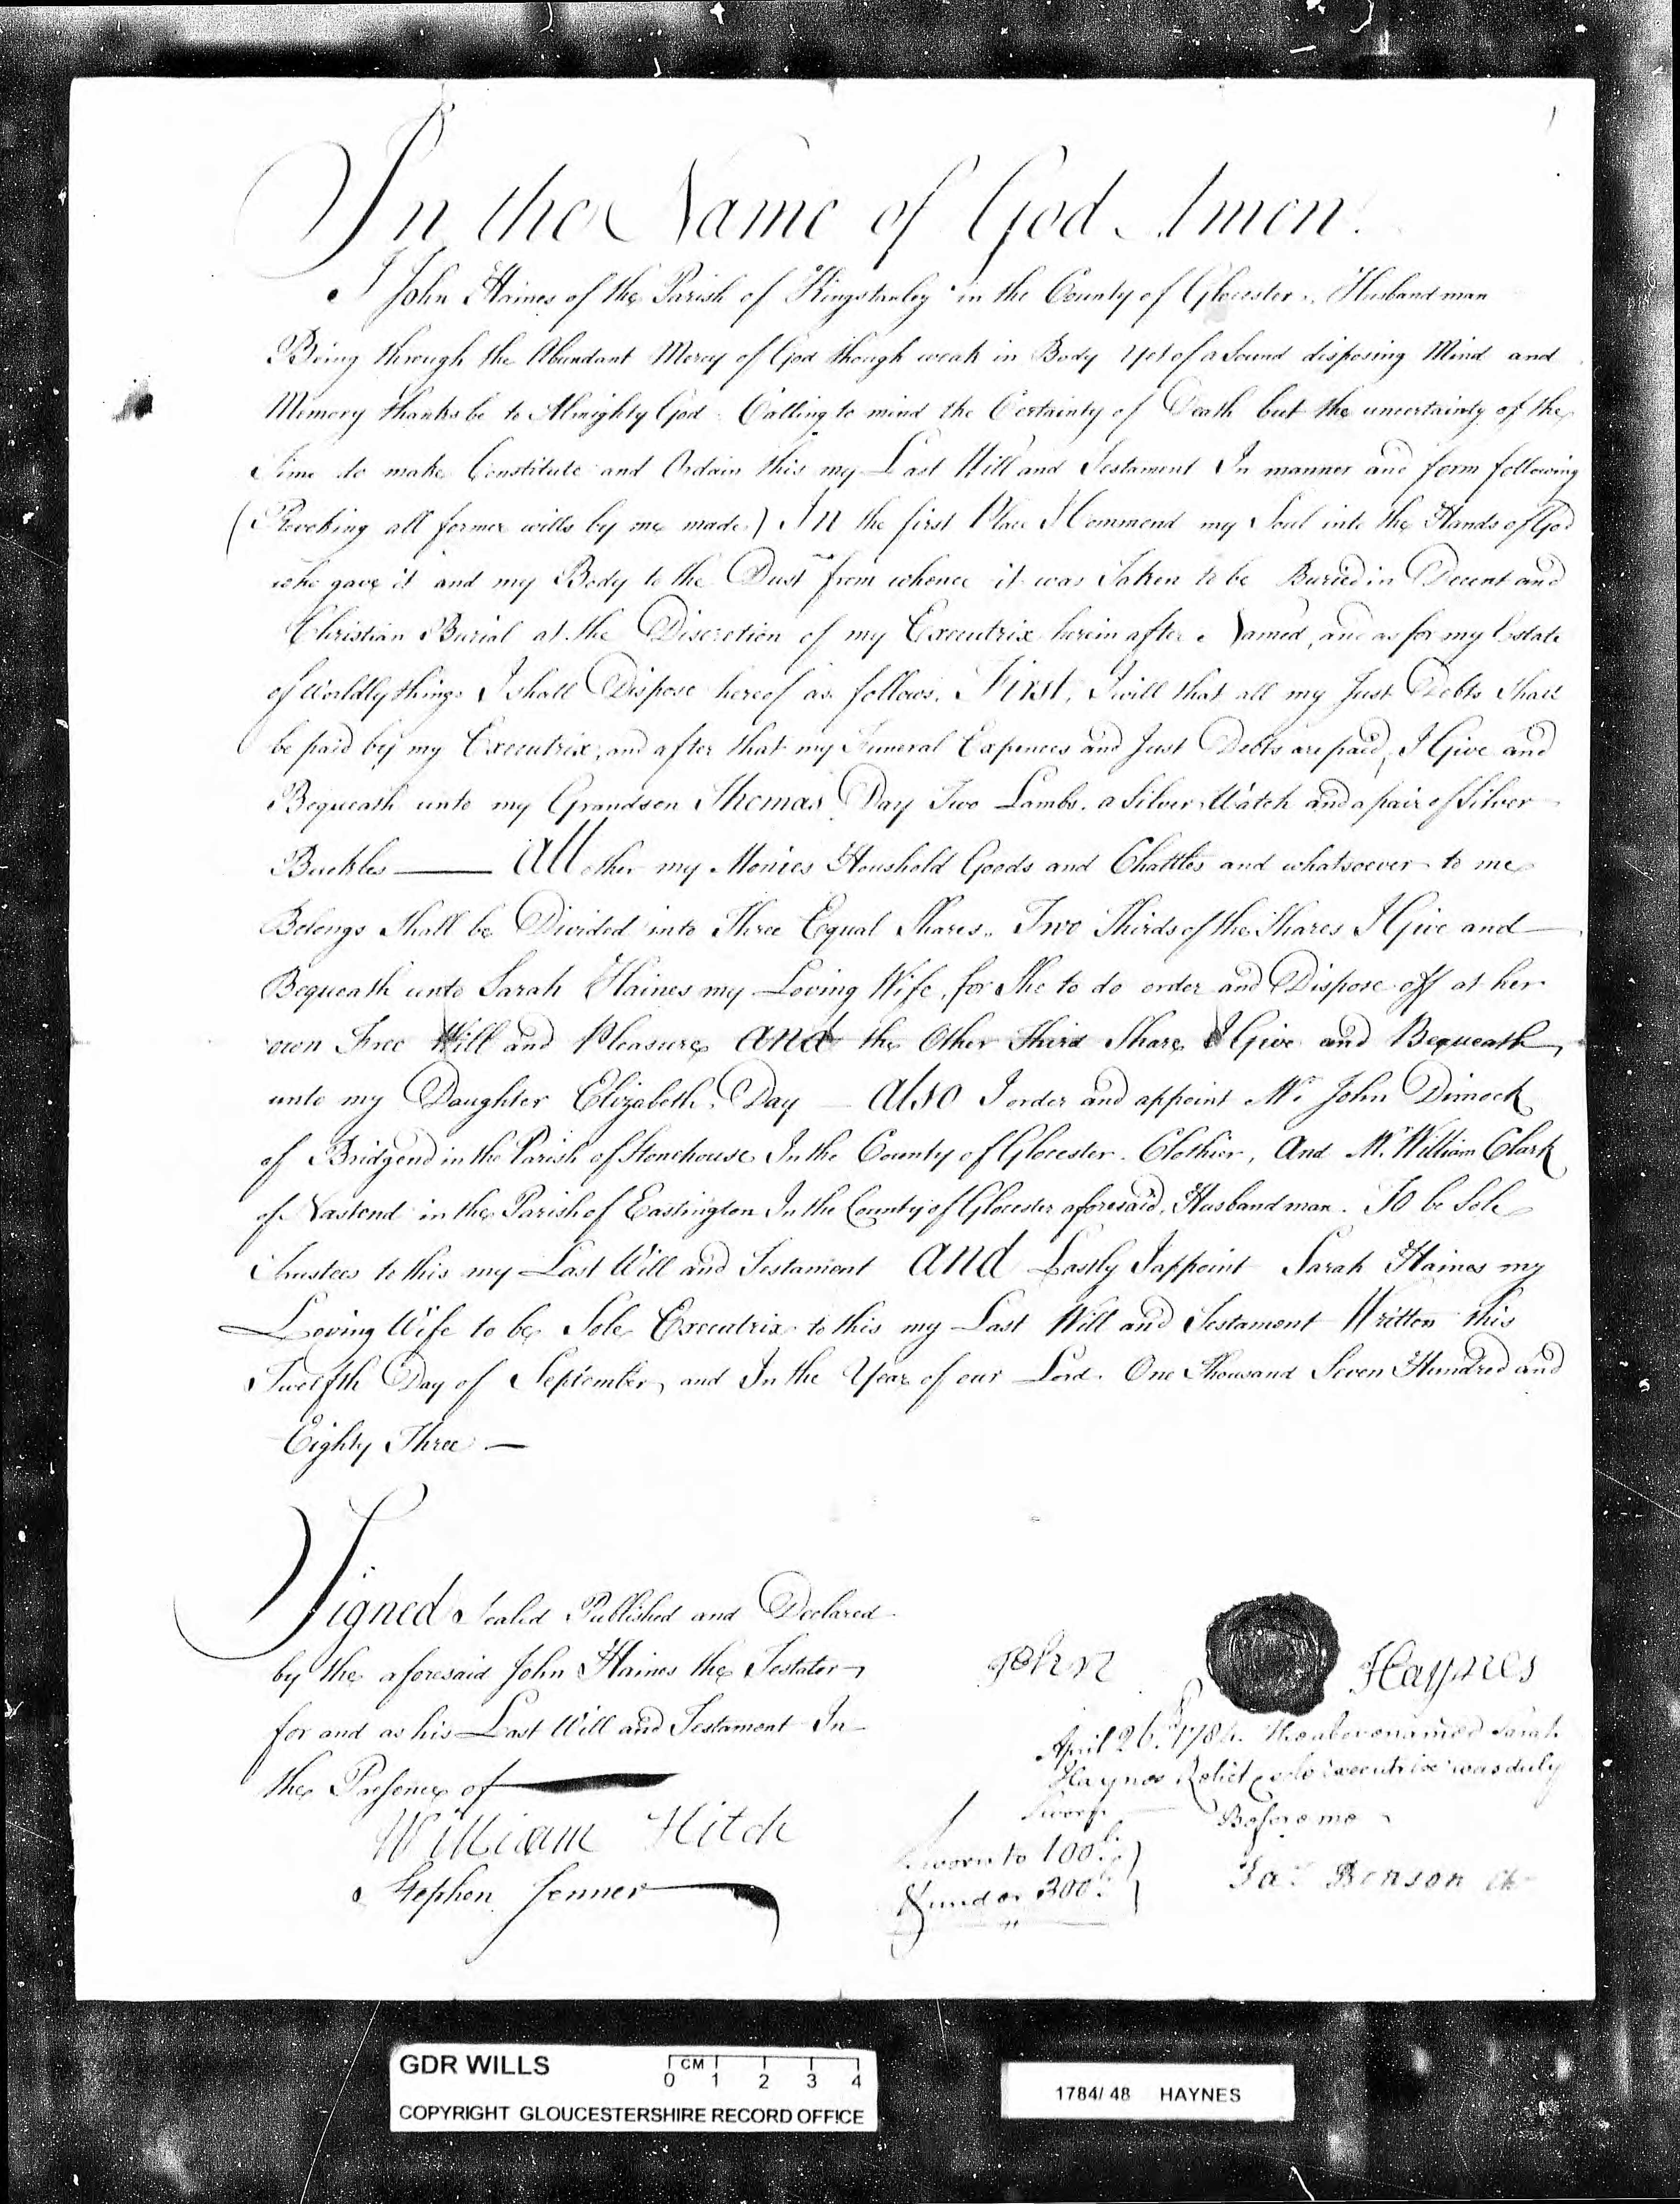 In the Name of God Amen.
I John Haines of the Parish of Kingstanley in the County of Glocester. Husbandman
Being through the Abundant Mercy of God though weak in Body Yet of a Sound disposing Mind and
Memory thanks be to Almighty God. Calling to mind the Certainty of Death but the uncertainty of the
Time do make Constitute and Ordain this my Last Will and Testament In manner and form following
(Revoking all former wills by me made) In the first Place I Commend my Soul into the Hands of God
who gave it and my Body to the Dust from whence it was Taken to be Buried in Decent and
Christian Burial at the Discretion of my Executrix herein after Named, and as for my Estate
of Worldly things I shall Dispose hereof as follows. First, I will that all my Just Debts Shall
be paid by my Executrix, and after that my Funeral Expences and Just Debts are paid, I Give and
Bequeath unto my Grandson Thomas Day Two Lambs. a Silver Watch and a pair of Silver
Buckles — All other my Monies Houshold Goods and Chattles and whatsoever to me
Belongs Shall be Divided into Three Equal Shares.. Two Thirds of the Shares I Give and
Bequeath unto Sarah Haines my Loving Wife, for She to do order and Dispose off at her
own Free Will and Pleasure And the Other Third Share I Give and Bequeath
unto my Daughter Elizabeth Day — Also I order and appoint Mr. John Dimock
of Bridgend in the Parish of Stonehouse In the County of Glocester. Clothier, And Mr. William Clark
of Nastend in the Parish of Eastington In the County of Glocester aforesaid, Husbandman. To be Sole
Trustees to this my Last Will and Testament And Lastly I appoint Sarah Haines my
Loving Wife to be Sole Executrix to this my Last Will and Testament Written this
Twelfth Day of September, and In the Year of our Lord. One Thousand Seven Hundred and
Eighty Three —
Signed Sealed Published and Declared
by the aforesaid John Haines the Testator
for and as his Last Will and Testament In
the Presence of
John Haynes
William Hitch
Stephen Jenner
April 26th. 1784. The abovenamed Sarah
Haynes Relict & sole Executrix was duly
Sworn — Before me
Sworn to 100£.
& under 300£.
Jas. Benson
GDR WILLS
CM
0 1 2 3 4
COPYRIGHT GLOUCESTERSHIRE RECORD OFFICE
1784/ 48 HAYNES